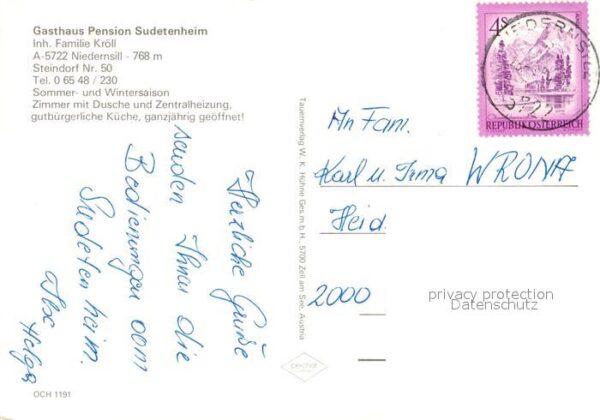 Gasthaus Pension Sudetenheim
Inh. Familie Kröll
A-5722 Niedernsill - 768 m
Steindorf Nr. 50
Tel. 0 65 48 / 230
Sommer- und Wintersaison
Zimmer mit Dusche und Zentralheizung,
gutbürgerliche Küche, ganzjährig geöffnet!
Herzliche Grüße
senden Ihnen die
Bedienungen vom
Sudetenheim.
Ilse
Helga
OCH 1191
Tauernverlag W. K. Hühne Ges.m.b.H., 5700 Zell am See, Austria
4S
REPUBLIK ÖSTERREICH
NIEDERNSILL
5722
An Fam.
Karl u. Irma WRONA
Heid
2000
privacy protection
Datenschutz